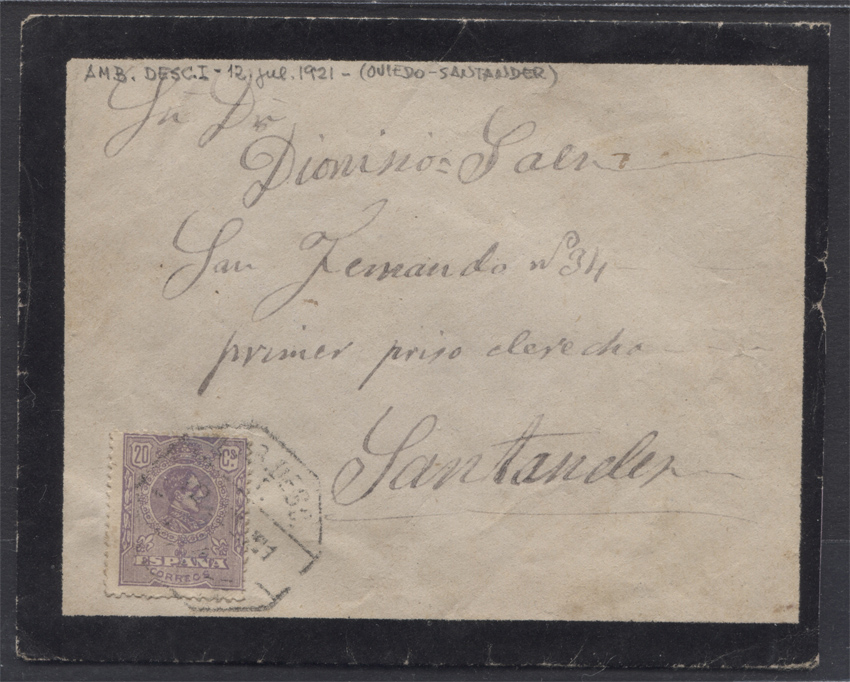 AMB. DESC. I - 12 jul. 1921 - (OVIEDO-SANTANDER)
Sr Dn
Dionisio Saenz
San Fernando nº 34
primer priso derecha
Santander
20 Cs
ESPAÑA
CORREOS
DESC
21